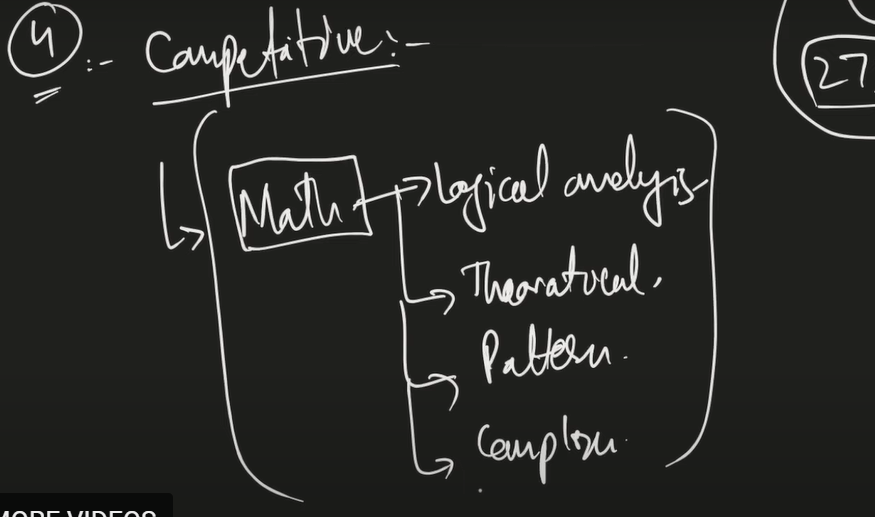 4 :- Competitive :-
27
Math → Logical analysis
→ Theoratical.
→ Pattern.
→
MORE VIDEOS